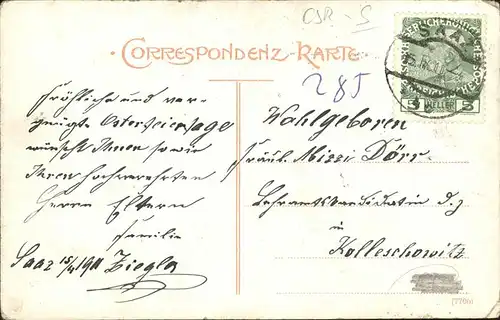 ČSR - S
CORRESPONDENZ-KARTE
285
SAAZ
5 HELLER 5
Fröhliche und ver-
gnügte Osterfeiertage
wünscht Ihnen sowie
Ihren hochverehrten
Herrn Eltern
Familie
Saaz 15/4 1911 Ziegler
Wohlgeboren
Fräul. Mizzi Dörr
Lehramtskandidatin d. z.
in
Kolleschowitz
(7760)